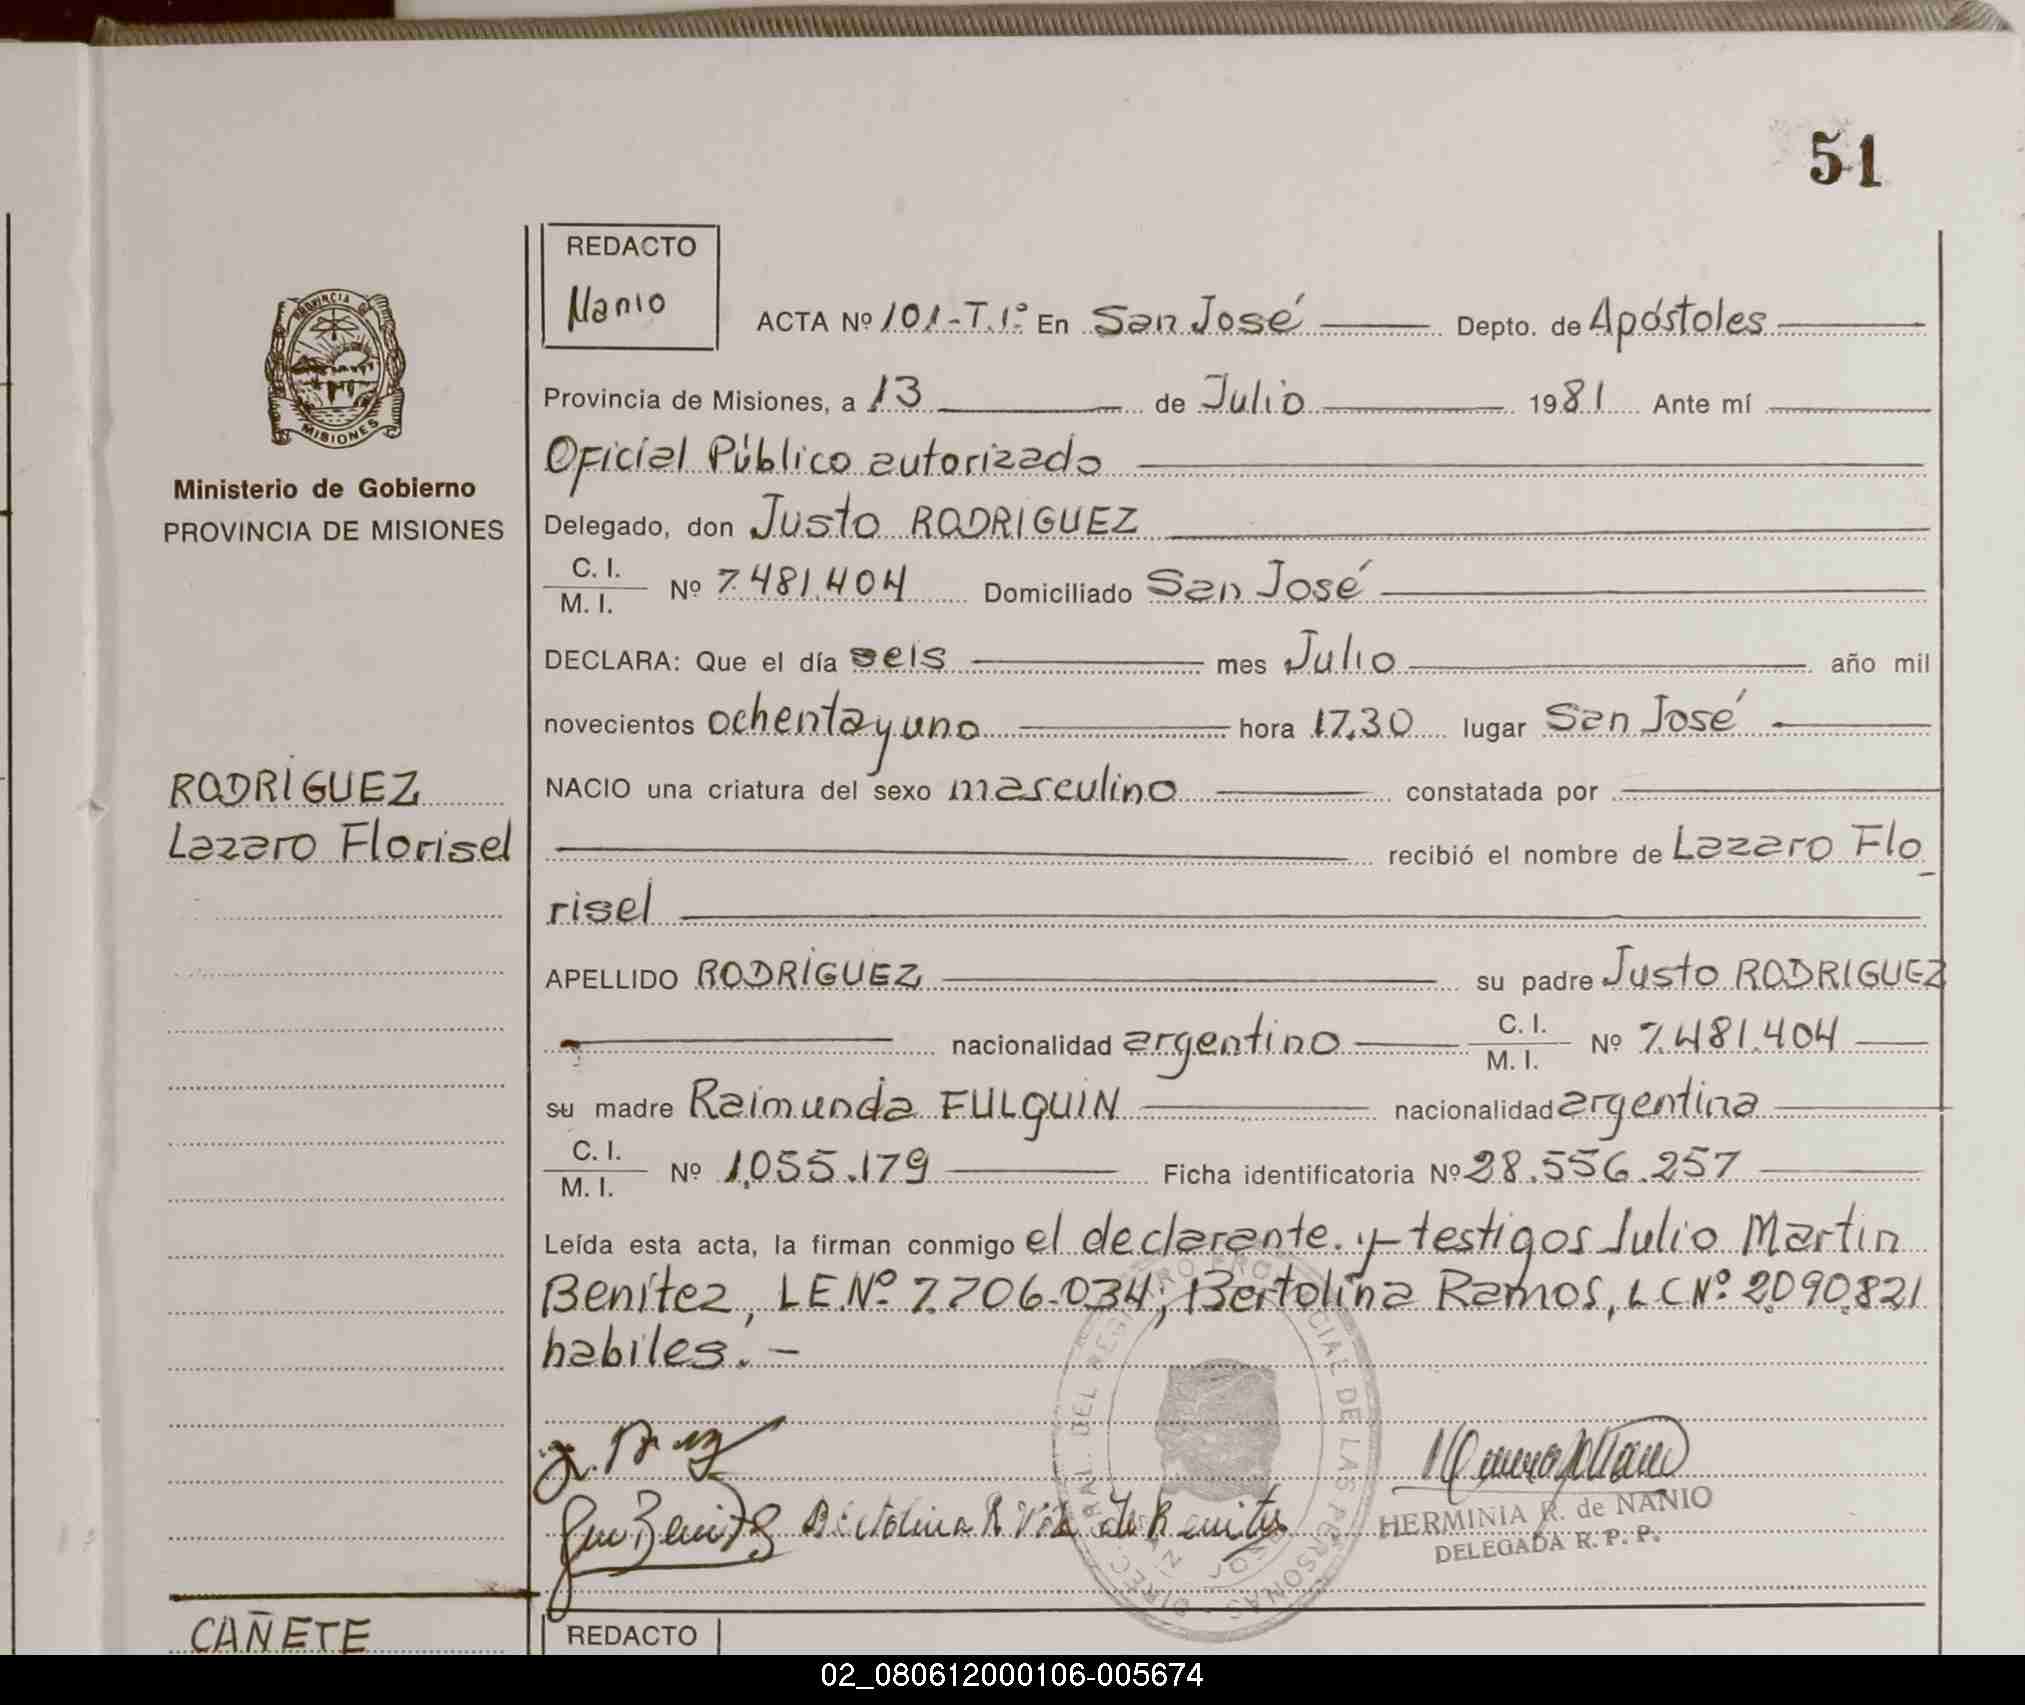 51
REDACTO
Nanio
ACTA Nº 101-T.1º En San José Depto. de Apóstoles
Provincia de Misiones, a 13 de Julio 1981 Ante mí
Oficial Público autorizado
Delegado, don Justo RODRIGUEZ
C. I.
M. I.
Nº 7.481.404 Domiciliado San José
DECLARA: Que el día seis mes Julio año mil
novecientos ochenta y uno hora 17,30 lugar San José
NACIO una criatura del sexo masculino constatada por
recibió el nombre de Lazaro Flo
risel
APELLIDO RODRIGUEZ su padre Justo RODRIGUEZ
nacionalidad argentino C. I. M. I. Nº 7.481.404
su madre Raimunda FULQUIN nacionalidad argentina
C. I.
M. I.
Nº 1.055.179 Ficha identificatoria Nº 28.556.257
Leída esta acta, la firman conmigo el declarante y testigos Julio Martin
Benítez, L.E.Nº 7.706.034; Bertolina Ramos, L C Nº 2.090.821
habiles. -
HERMINIA R. de NANIO
DELEGADA R. P. P.
PROVINCIA DE
MISIONES
Ministerio de Gobierno
PROVINCIA DE MISIONES
RODRIGUEZ
Lazaro Florisel
CAÑETE
REDACTO
02_080612000106-005674